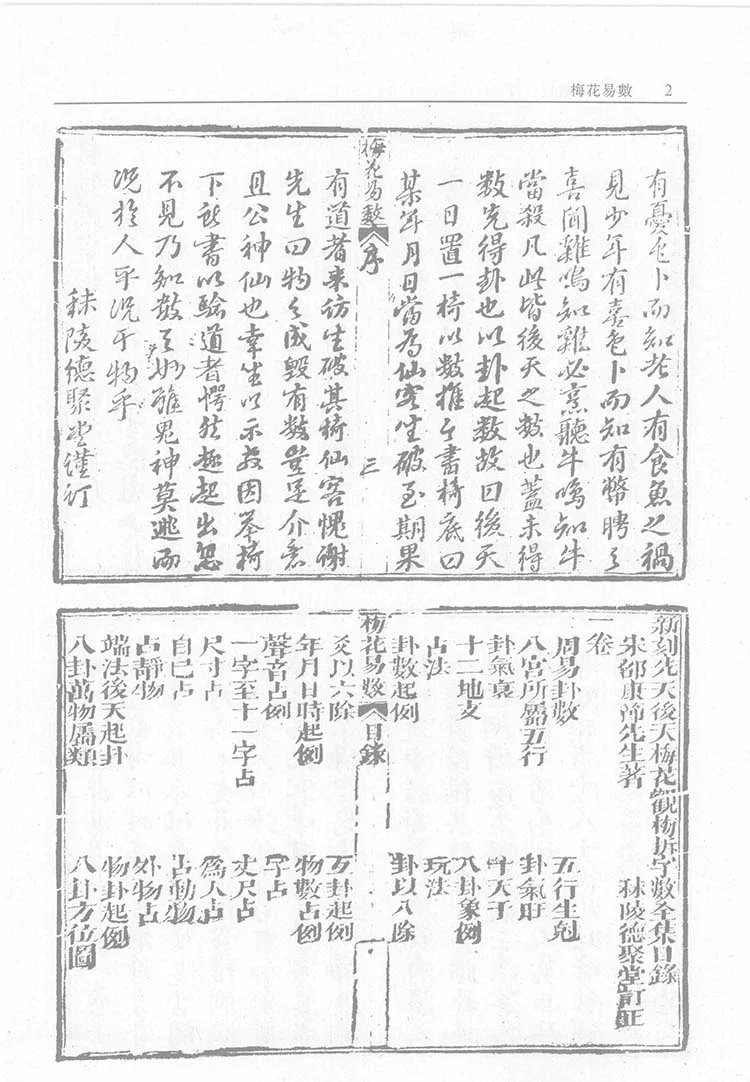 梅花易數 2
有憂色卜而知老人有食魚之禍
見少年有喜色卜而知有幣聘之
喜聞雞鳴知雞必烹聽牛鳴知牛
當殺凡此皆後天之數也蓋未得
數先得卦也以卦起數故曰後天
一日置一椅以數推之書椅底曰
某年月日當為仙客坐破至期果
梅花易數 序 三
有道者来仿坐破其椅仙客愧謝
先生曰物之成毀有数豈足介意
且公神仙也幸坐以示教因举椅
下所書以驗道者愕然趨起出忽
不見乃知数之妙雖鬼神莫逃而
况於人乎况于物乎
秣陵德聚堂謹订
新刻先天後天梅花觀梅拆字數全集目錄
宋邵康節先生著 秣陵德聚堂訂正
一卷
周易卦數 五行生剋
八宮所屬五行 卦氣旺
卦氣衰 十天干
十二地支 八卦象例
占法 玩法
卦數起例 卦以八除
梅花易數 目錄
爻以六除 互卦起例
年月日時起例 物數占例
聲音占例 字占
一字至十一字占 丈尺占
尺寸占 為人占
自己占 占動物
占靜物 外物占
端法後天起卦 物卦起例
八卦萬物屬類 八卦方位圖